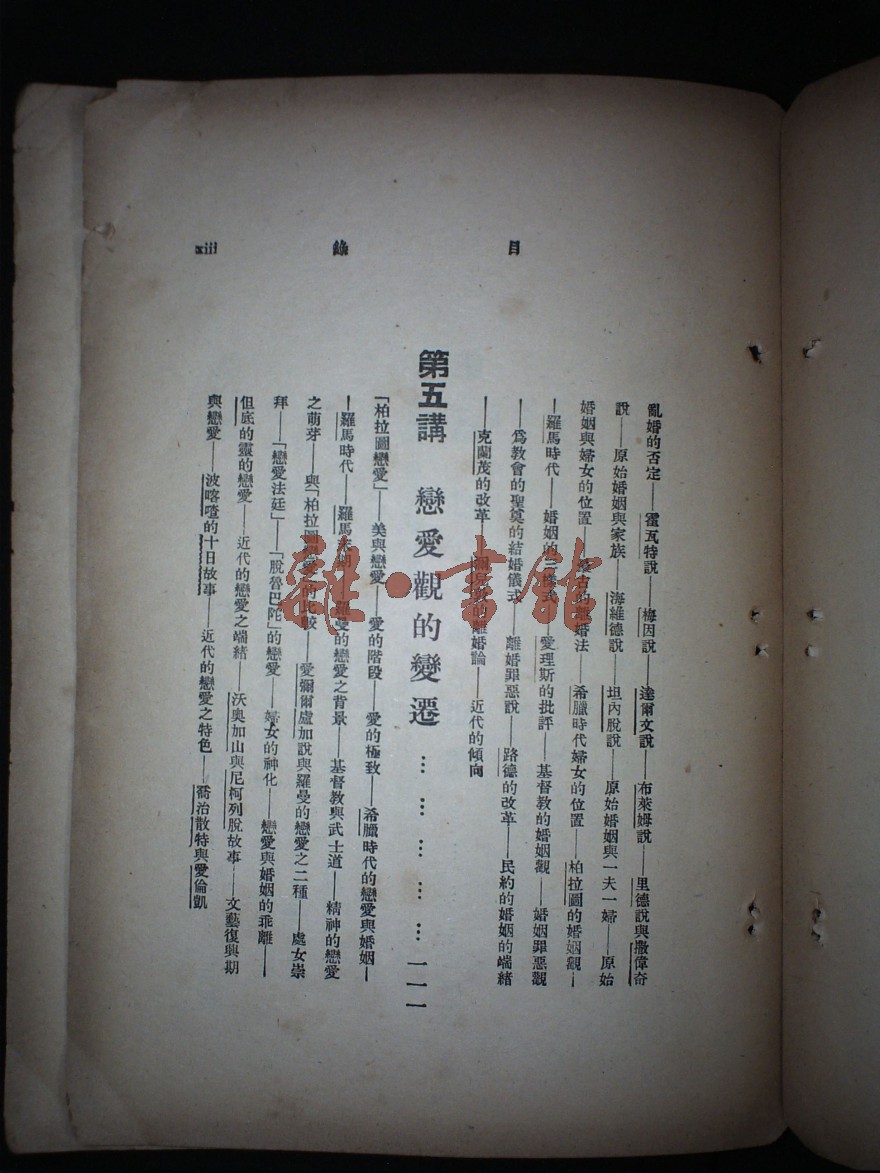 目錄
xiii
亂婚的否定——霍瓦特說——梅因說——達爾文說——布萊姆說——里德說與撒偉奇
說——原始婚姻與家族——海維德說——坦內脫說——原始婚姻與一夫一婦——原始
婚姻與婦女的位置——的離婚法——希臘時代婦女的位置——柏拉圖的婚姻觀—
—羅馬時代——婚姻的三樣式——愛理斯的批評——基督教的婚姻觀——婚姻罪惡觀
——為教會的聖奠的結婚儀式——離婚罪惡說——路德的改革——民約的婚姻的端緒
——克蘭茂的改革——的離婚論——近代的傾向
第五講 戀愛觀的變遷……………一一一
「柏拉圖戀愛」——美與戀愛——愛的階段——愛的極致——希臘時代的戀愛與婚姻—
—羅馬時代——羅馬末期——羅曼的戀愛之背景——基督教與武士道——精神的戀愛
之萌芽——與「柏拉圖戀愛」的比較——愛彌爾盧加說與羅曼的戀愛之二種——處女崇
拜——「戀愛法廷」——「脫魯巴陀」的戀愛——婦女的神化——戀愛與婚姻的乖離——
但底的靈的戀愛——近代的戀愛之端緒——沃奧加山與尼柯列脫故事——文藝復興期
與戀愛——波喀喳的十日故事——近代的戀愛之特色——喬治散特與愛倫凱
雜·書館